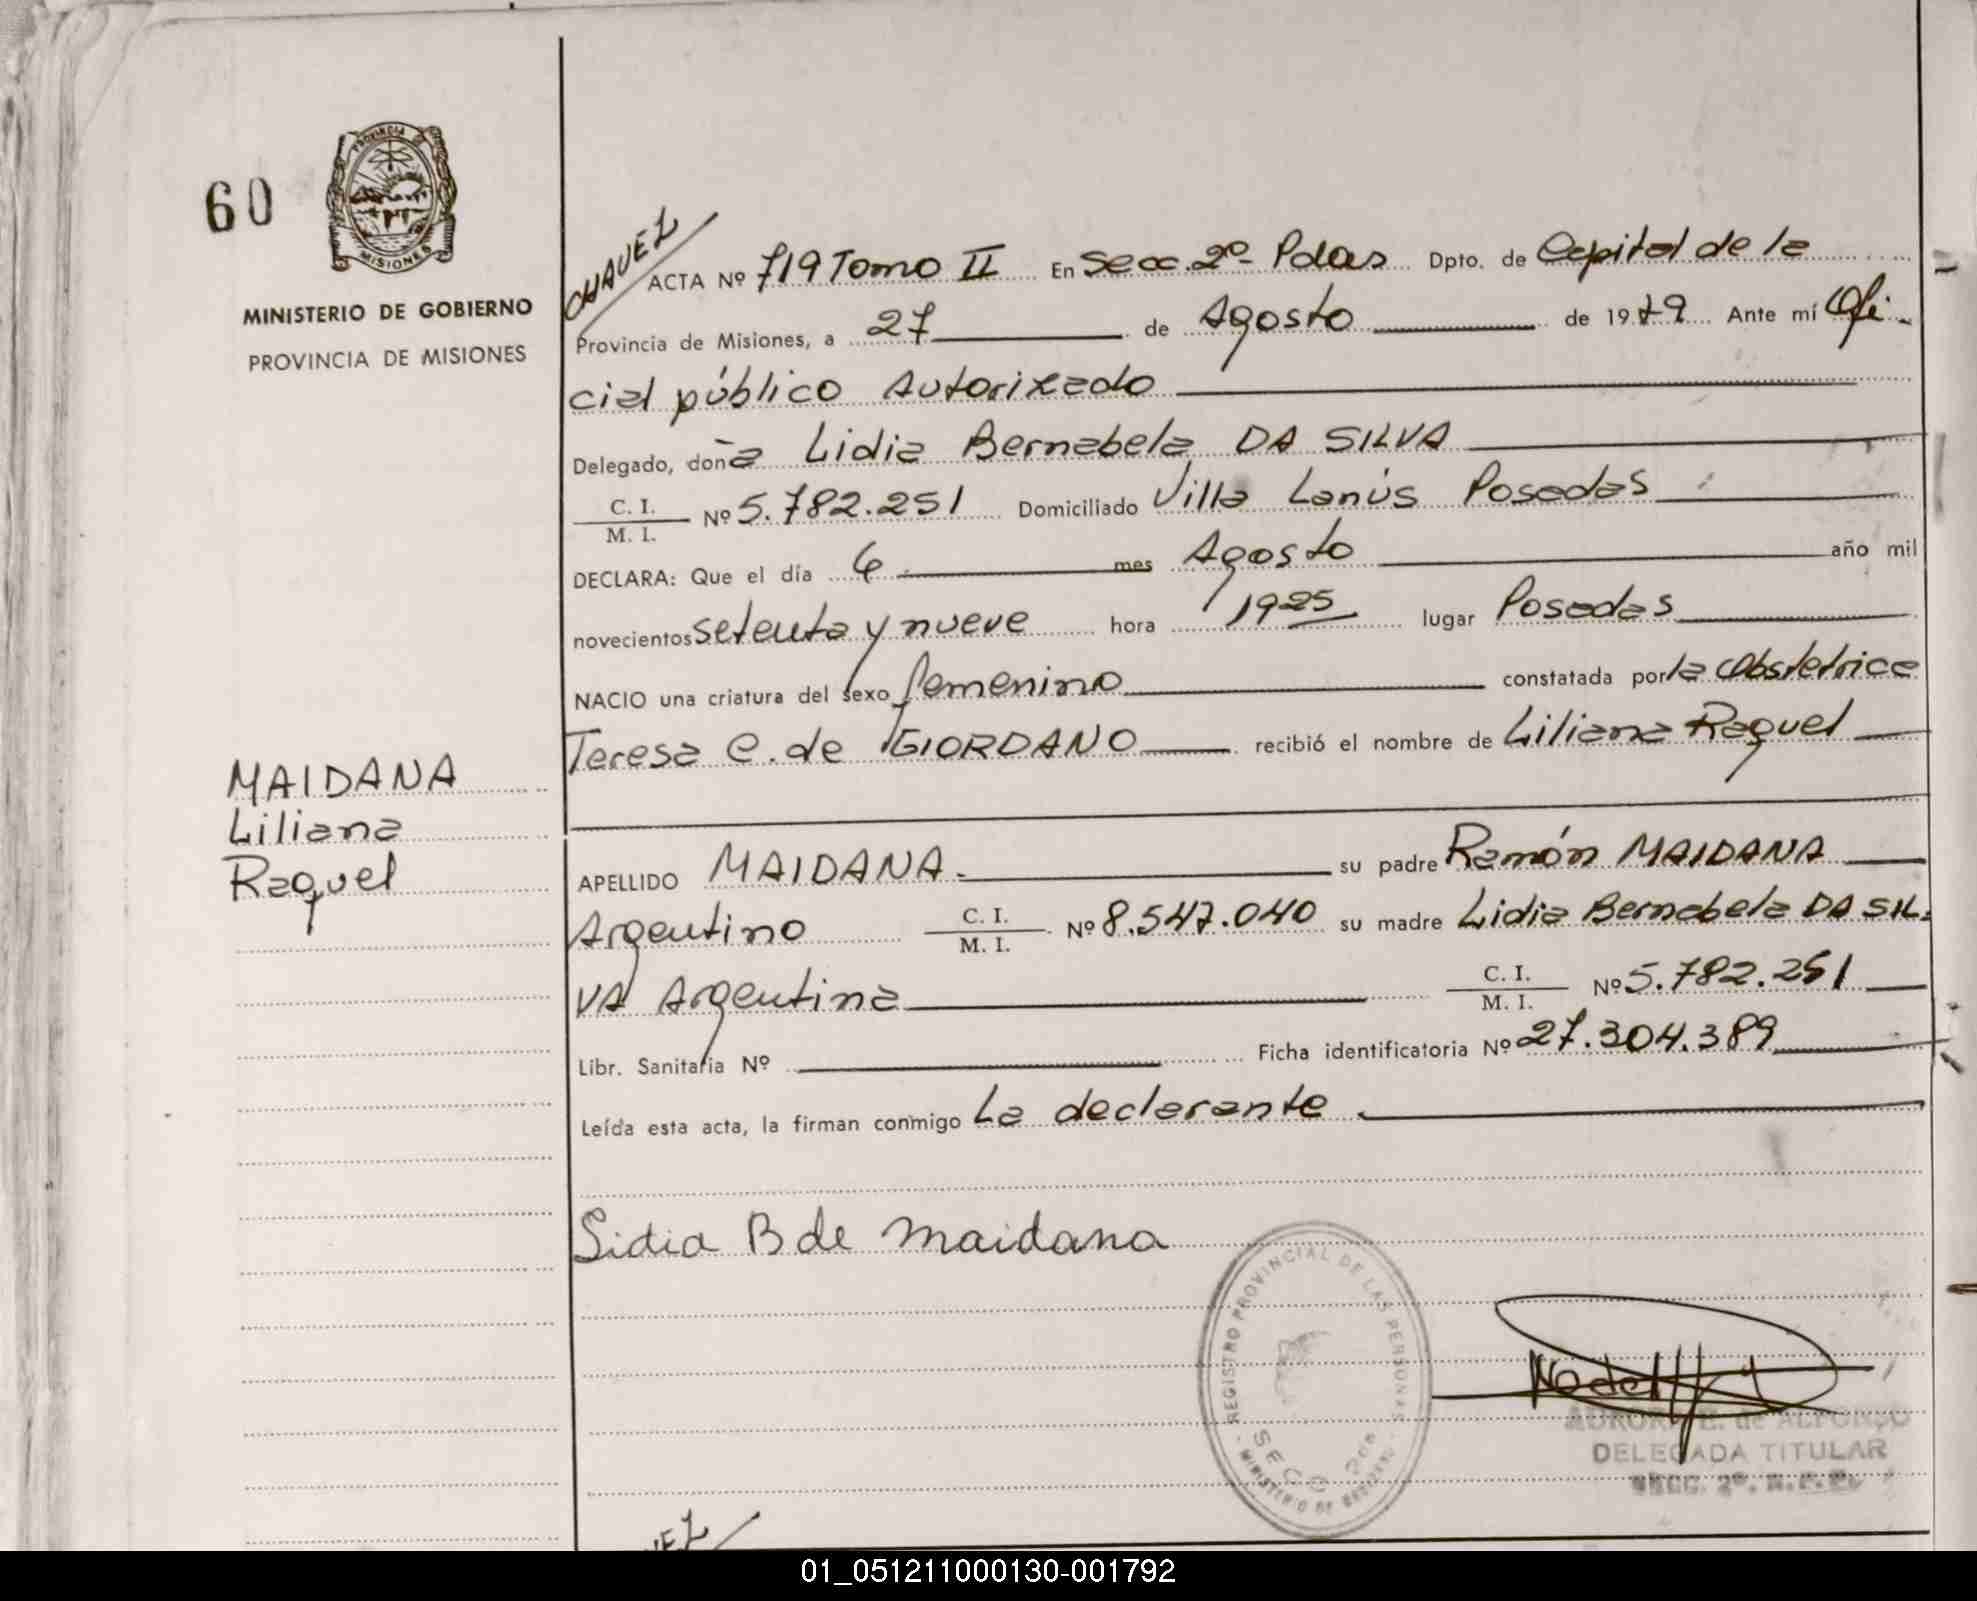 60
PROVINCIA DE
MISIONES
MINISTERIO DE GOBIERNO
PROVINCIA DE MISIONES
MAIDANA
Liliana
Raquel
CHAVEZ
ACTA Nº 719 Tomo II En Secc. 2º- Pdas Dpto. de Capital de la
Provincia de Misiones, a 27 de Agosto de 1979 Ante mí Ofi-
cial público Autorizado
Delegado, doña Lidia Bernabela DA SILVA
C. I. / M. I. Nº 5.782.251 Domiciliado Villa Lanús Posadas
DECLARA: Que el día 6 mes Agosto año mil
novecientos setenta y nueve hora 1925 lugar Posadas
NACIO una criatura del sexo femenino constatada por la Obstetrice
Teresa C. de GIORDANO recibió el nombre de Liliana Raquel
APELLIDO MAIDANA.- su padre Ramón MAIDANA
Argentino C. I. / M. I. Nº 8.547.040 su madre Lidia Bernabela DA SIL-
VA Argentina C. I. / M. I. Nº 5.782.251
Libr. Sanitaria Nº Ficha identificatoria Nº 27.304.389
Leída esta acta, la firman conmigo La declarante.
Lidia B de Maidana
REGISTRO PROVINCIAL DE LAS PERSONAS
SECC 2da
MINISTERIO DE GOBIERNO
AURORA E. de ALFONSO
DELEGADA TITULAR
SECC. 2º. R.P.P.
VEZ
01_051211000130-001792